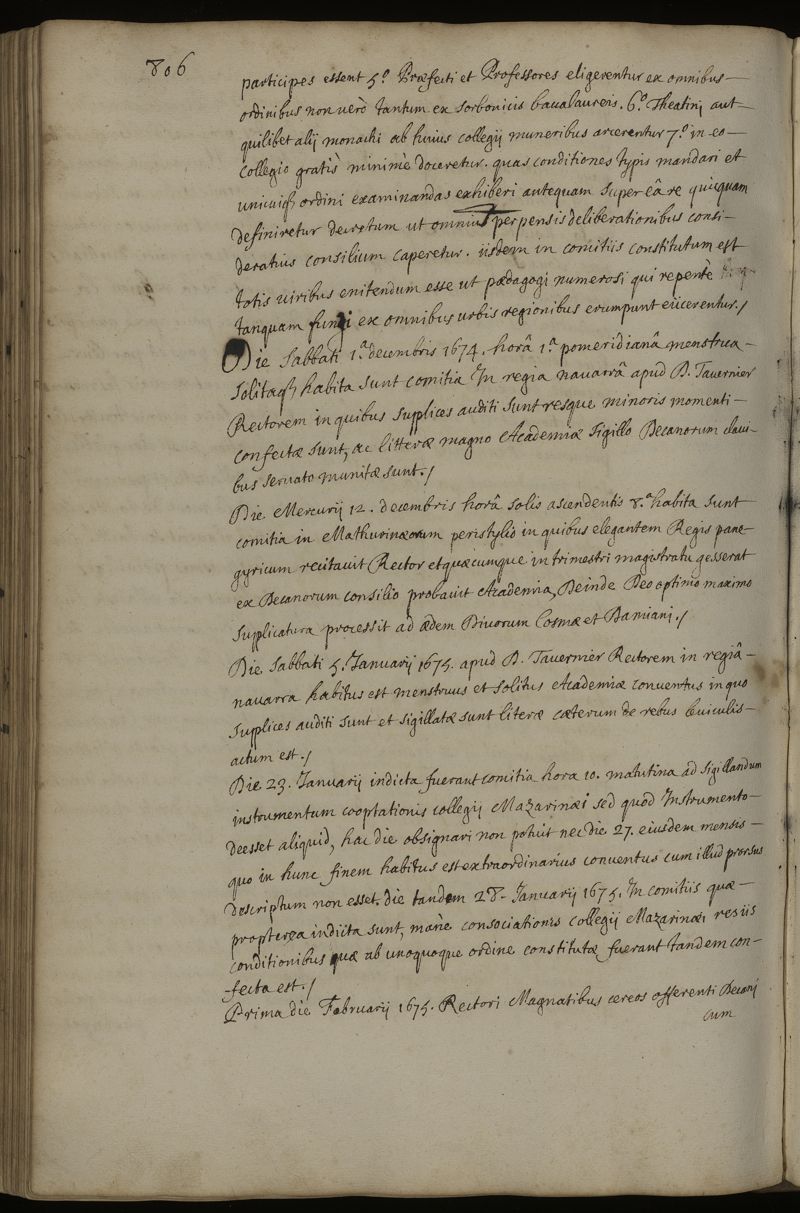 806
participes essent 5.º Præfecti et Professores eligerentur ex omnibus—
ordinibus non verò tantum ex sorbonicis baccalaureis. 6.º Theatinj aut—
quilibet alij monachi ab huius collegij muneribus arcerentur 7.º in eo—
collegio gratis minimè doceretur. quas conditiones typis mandari et
unicuiq ordini examinandas exhiberi antequam super eâ re quicquam
definiretur decretum ut omnius perpensis deliberationibus consi-
deratius consilium caperetur. iisdem in comitiis constitutum est
totis viribus enitendum esse ut pædagogi numerosi qui repentè
tanquam fungi ex omnibus urbis regionibus erumpunt eiicerentur./
Die Sabbati 1.ª decembris 1674. horâ 1.ª pomeridianâ menstrua—
solitaq habita sunt comitia In regia navarrâ apud D. Tavernier
Rectorem in quibus supplices auditi sunt resque minoris momenti—
confectæ sunt, ac litteræ magno Academiæ sigillo Decanorum clavi-
bus servato munitæ sunt./
Die Mercurij 12. decembris horâ solis ascendentis 8.ª habita sunt
comitia in Mathurinæorum peristylio in quibus elegantem Regis pane-
gyricum recitavit Rector et quæcumque in trimestri magistratu gesserat
ex Decanorum consilio probavit Academia, Deinde Deo optimo maximo
supplicatura processit ad ædem Divorum Cosmæ et Damiani./
Die Sabbati 5. Januarij 1675. apud D. Tavernier Rectorem in regiâ—
navarra habitus est menstruus et solitus Academiæ conventus in quo
supplices auditi sunt et sigillatæ sunt literæ cæterum de rebus leviculis—
actum est./
Die 23. Januarij indicta fuerant comitia hora 10. matutina ad sigillandum
instrumentum cooptationis collegij Mazarinæi sed quod Instrumento—
deesset aliquid, hac die obsignari non potuit nec die 27. eiusdem mensis—
quo in hunc finem habitus est extraordinarius conventus cum illud prorsus
descriptum non esset. die tandem 28. Januarij 1675. In comitiis quæ—
propterea indicta sunt, manè consociationis collegij Mazarinæi res iis
conditionibus quæ ab unoquoque ordine constitutæ fuerant tandem con-
-fecta est./
Prima die Februarij 1675. Rectori Magnatibus cereos offerenti Decanj
cum